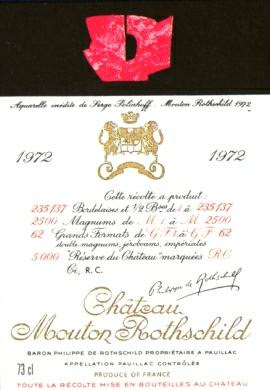 Aquarelle inédite de Serge Poliakoff. Mouton Rothschild 1972
1972 1972
Cette récolte a produit:
235137 Bordelaises et 1/2 Bses de 1 à 235137
2500 Magnums de M 1 à M 2500
62 Grands Formats de G F 1 à G F 62
double magnums, jeroboams, impériales
5000 "Réserve du Château" marquées R.C.
Ce, R. C.
Philippe de Rothschild
Château
Mouton Rothschild
BARON PHILIPPE DE ROTHSCHILD PROPRIÉTAIRE A PAUILLAC
APPELLATION PAUILLAC CONTRÔLÉE
73 cl PRODUCE OF FRANCE
TOUTE LA RÉCOLTE MISE EN BOUTEILLES AU CHÂTEAU